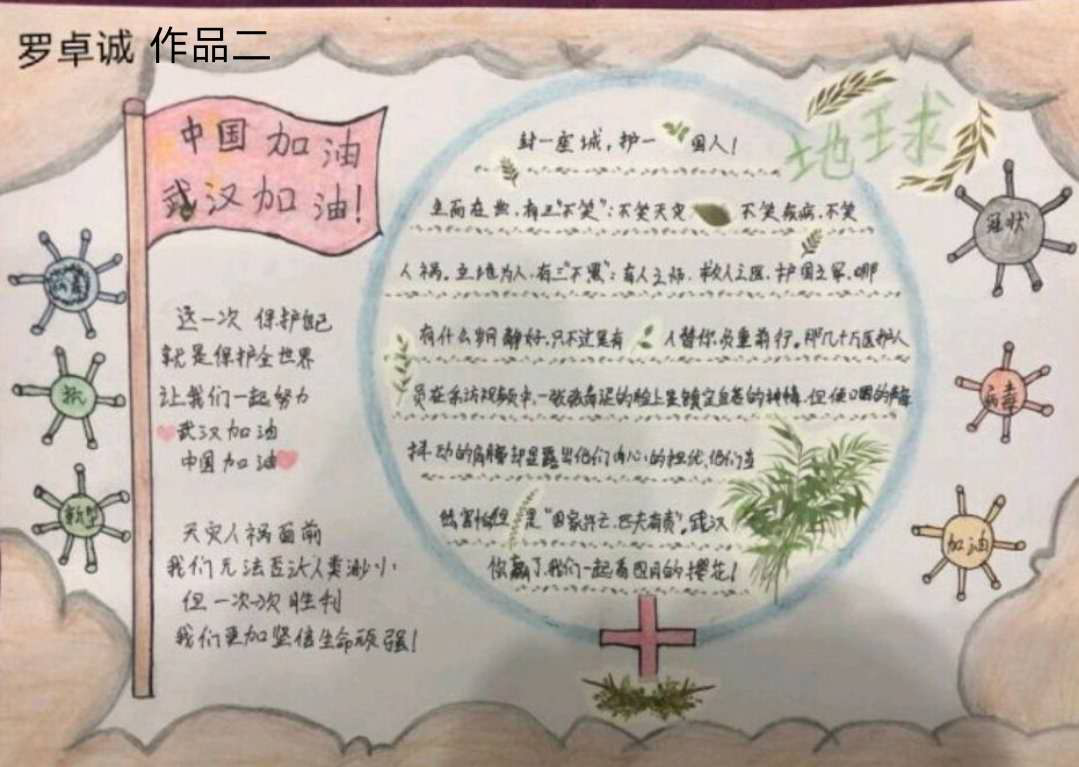 罗卓诚 作品二
中国加油
武汉加油!
地球
封一座城,护一国人!
生而在世,有三"不笑":不笑天灾 不笑疾病,不笑
人祸。立地为人,有三"不黑":育人之师,救人之医,护国之军。哪
有什么岁月静好,只不过是有人替你负重前行。那几十万医护人
员在采访视频中,一张张的脸上是镇定自若的神情,但
抖动的肩膀却显露出他们内心的担忧,他们在
害怕但是"国家兴亡,匹夫有责"。武汉
你赢了我们一起看四月的樱花!
这一次 保护自己
就是保护全世界
让我们一起努力
武汉加油
中国加油
天灾人祸面前
我们无法否认人类渺小
但一次次胜利
我们更加坚信生命顽强!
病毒
抗
新型
冠状
病毒
加油